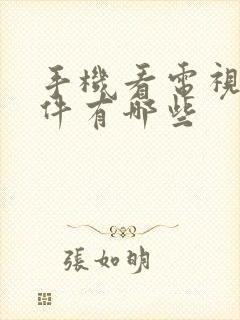 手機看電視
件有哪些
張如明